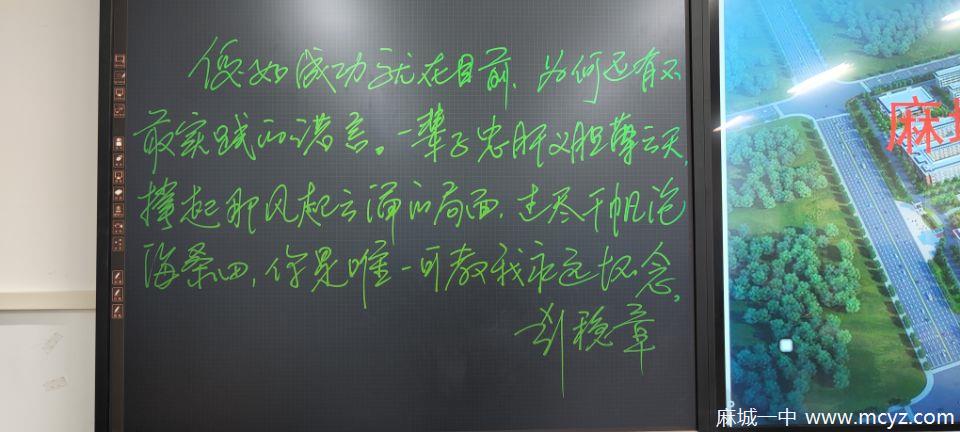 假如成功就在目前,为何还有不
敢实践的诺言。一辈子忠肝义胆薄云天,
撑起那风起云涌的局面,过尽千帆沧
海桑田,你是唯一可教我永远怀念。
刘稳章
麻城
麻城一中 www.mcyz.com